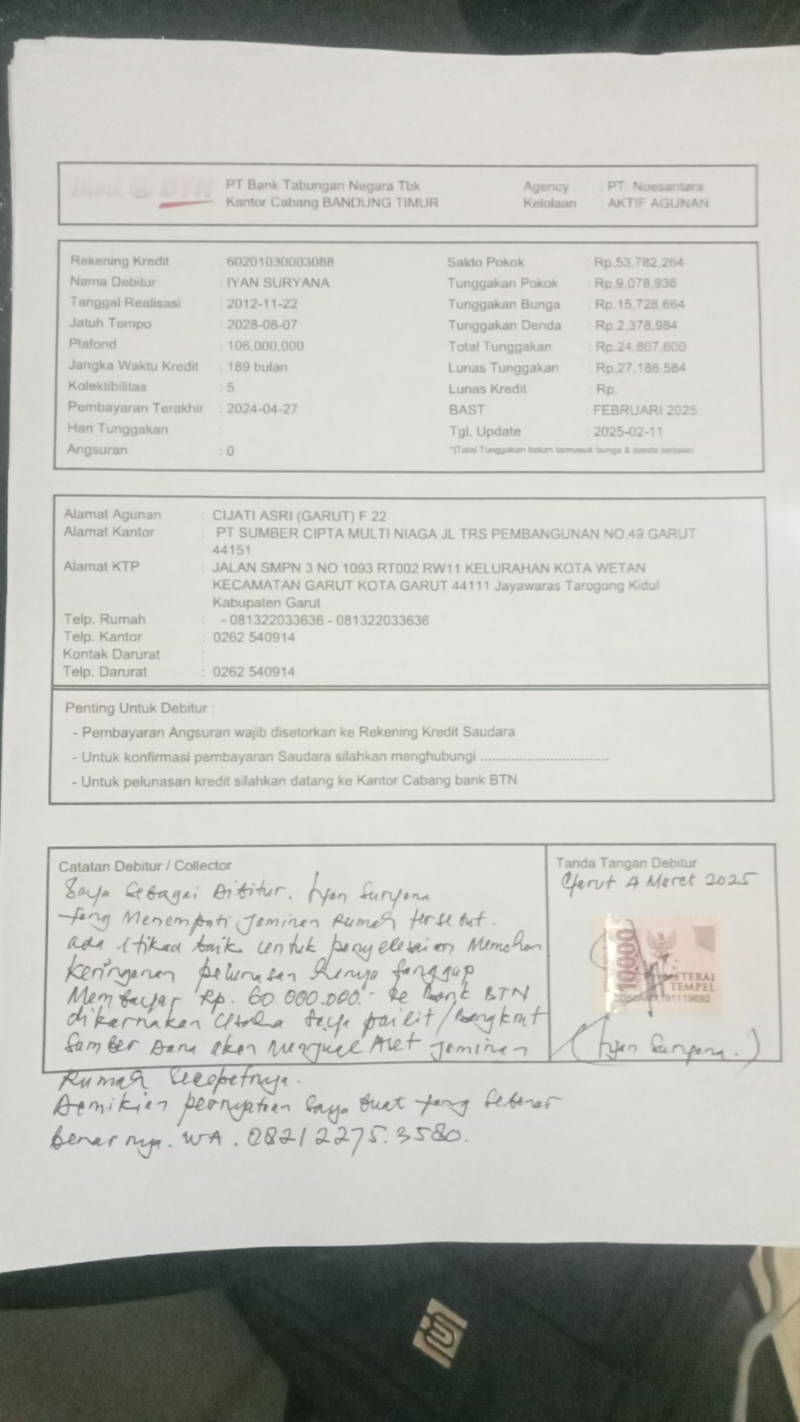 Bank BTN PT Bank Tabungan Negara Tbk Agency : PT. Noesantara
Kantor Cabang BANDUNG TIMUR Kelolaan : AKTIF AGUNAN
Rekening Kredit : 60201030003088 Saldo Pokok : Rp.53,782,264
Nama Debitur : IYAN SURYANA Tunggakan Pokok : Rp.9,078,936
Tanggal Realisasi : 2012-11-22 Tunggakan Bunga : Rp.15,728,664
Jatuh Tempo : 2028-08-07 Tunggakan Denda : Rp.2,378,984
Plafond : 106,000,000 Total Tunggakan : Rp.24,807,600
Jangka Waktu Kredit : 189 bulan Lunas Tunggakan : Rp.27,186,584
Kolektibilitas : 5 Lunas Kredit : Rp.
Pembayaran Terakhir : 2024-04-27 BAST : FEBRUARI 2025
Hari Tunggakan : Tgl. Update : 2025-02-11
Angsuran : 0 *)Total Tunggakan belum termasuk bunga & denda berjalan
Alamat Agunan : CIJATI ASRI (GARUT) F 22
Alamat Kantor : PT SUMBER CIPTA MULTI NIAGA JL TRS PEMBANGUNAN NO.49 GARUT
44151
Alamat KTP : JALAN SMPN 3 NO 1093 RT002 RW11 KELURAHAN KOTA WETAN
KECAMATAN GARUT KOTA GARUT 44111 Jayawaras Tarogong Kidul
Kabupaten Garut
Telp. Rumah : - 081322033636 - 081322033636
Telp. Kantor : 0262 540914
Kontak Darurat :
Telp. Darurat : 0262 540914
Penting Untuk Debitur :
- Pembayaran Angsuran wajib disetorkan ke Rekening Kredit Saudara
- Untuk konfirmasi pembayaran Saudara silahkan menghubungi ................................
- Untuk pelunasan kredit silahkan datang ke Kantor Cabang bank BTN
Catatan Debitur / Collector
Saya Sebagai Dibitur. Iyan Suryana
yang Menempati Jaminan Rumah tersebut.
ada itikad baik untuk penyelesaian Memohon
keringanan pelunasan hanya sanggup
Membayar Rp. 60.000.000.- ke Bank BTN
dikarnakan Usaha Saya pailit/Bangkrut
Sumber Dana akan Menjual Aset Jaminan
Rumah Secepatnya.
Demikian pernyataan Saya buat yang Sebenar
benarnya. WA. 0821 2275.3580.
Tanda Tangan Debitur
Garut 4 Maret 2025
10000
METERAI
TEMPEL
(Iyan Suryana.)